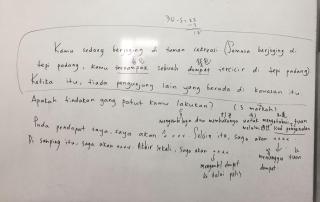 30-5-22
Kamu sedang berjoging di taman rekreasi (Semasa berjoging di
tepi padang, kamu ternampak sebuah dompet tercicir di tepi padang)
Ketika itu, tiada pengunjung lain yang berada di kawasan itu
Apakah tindakan yang patut kamu lakukan? (3 markah)
Pada pendapat saya, saya akan .... Selain itu, saya akan ....
mengambilnya dan membukanya untuk mengetahui tuan
melalui kad pengenalan
Di samping itu, saya akan .... Akhir sekali, saya akan ....
menunggu tuan
dompet
mengambil dompet
& balai polis